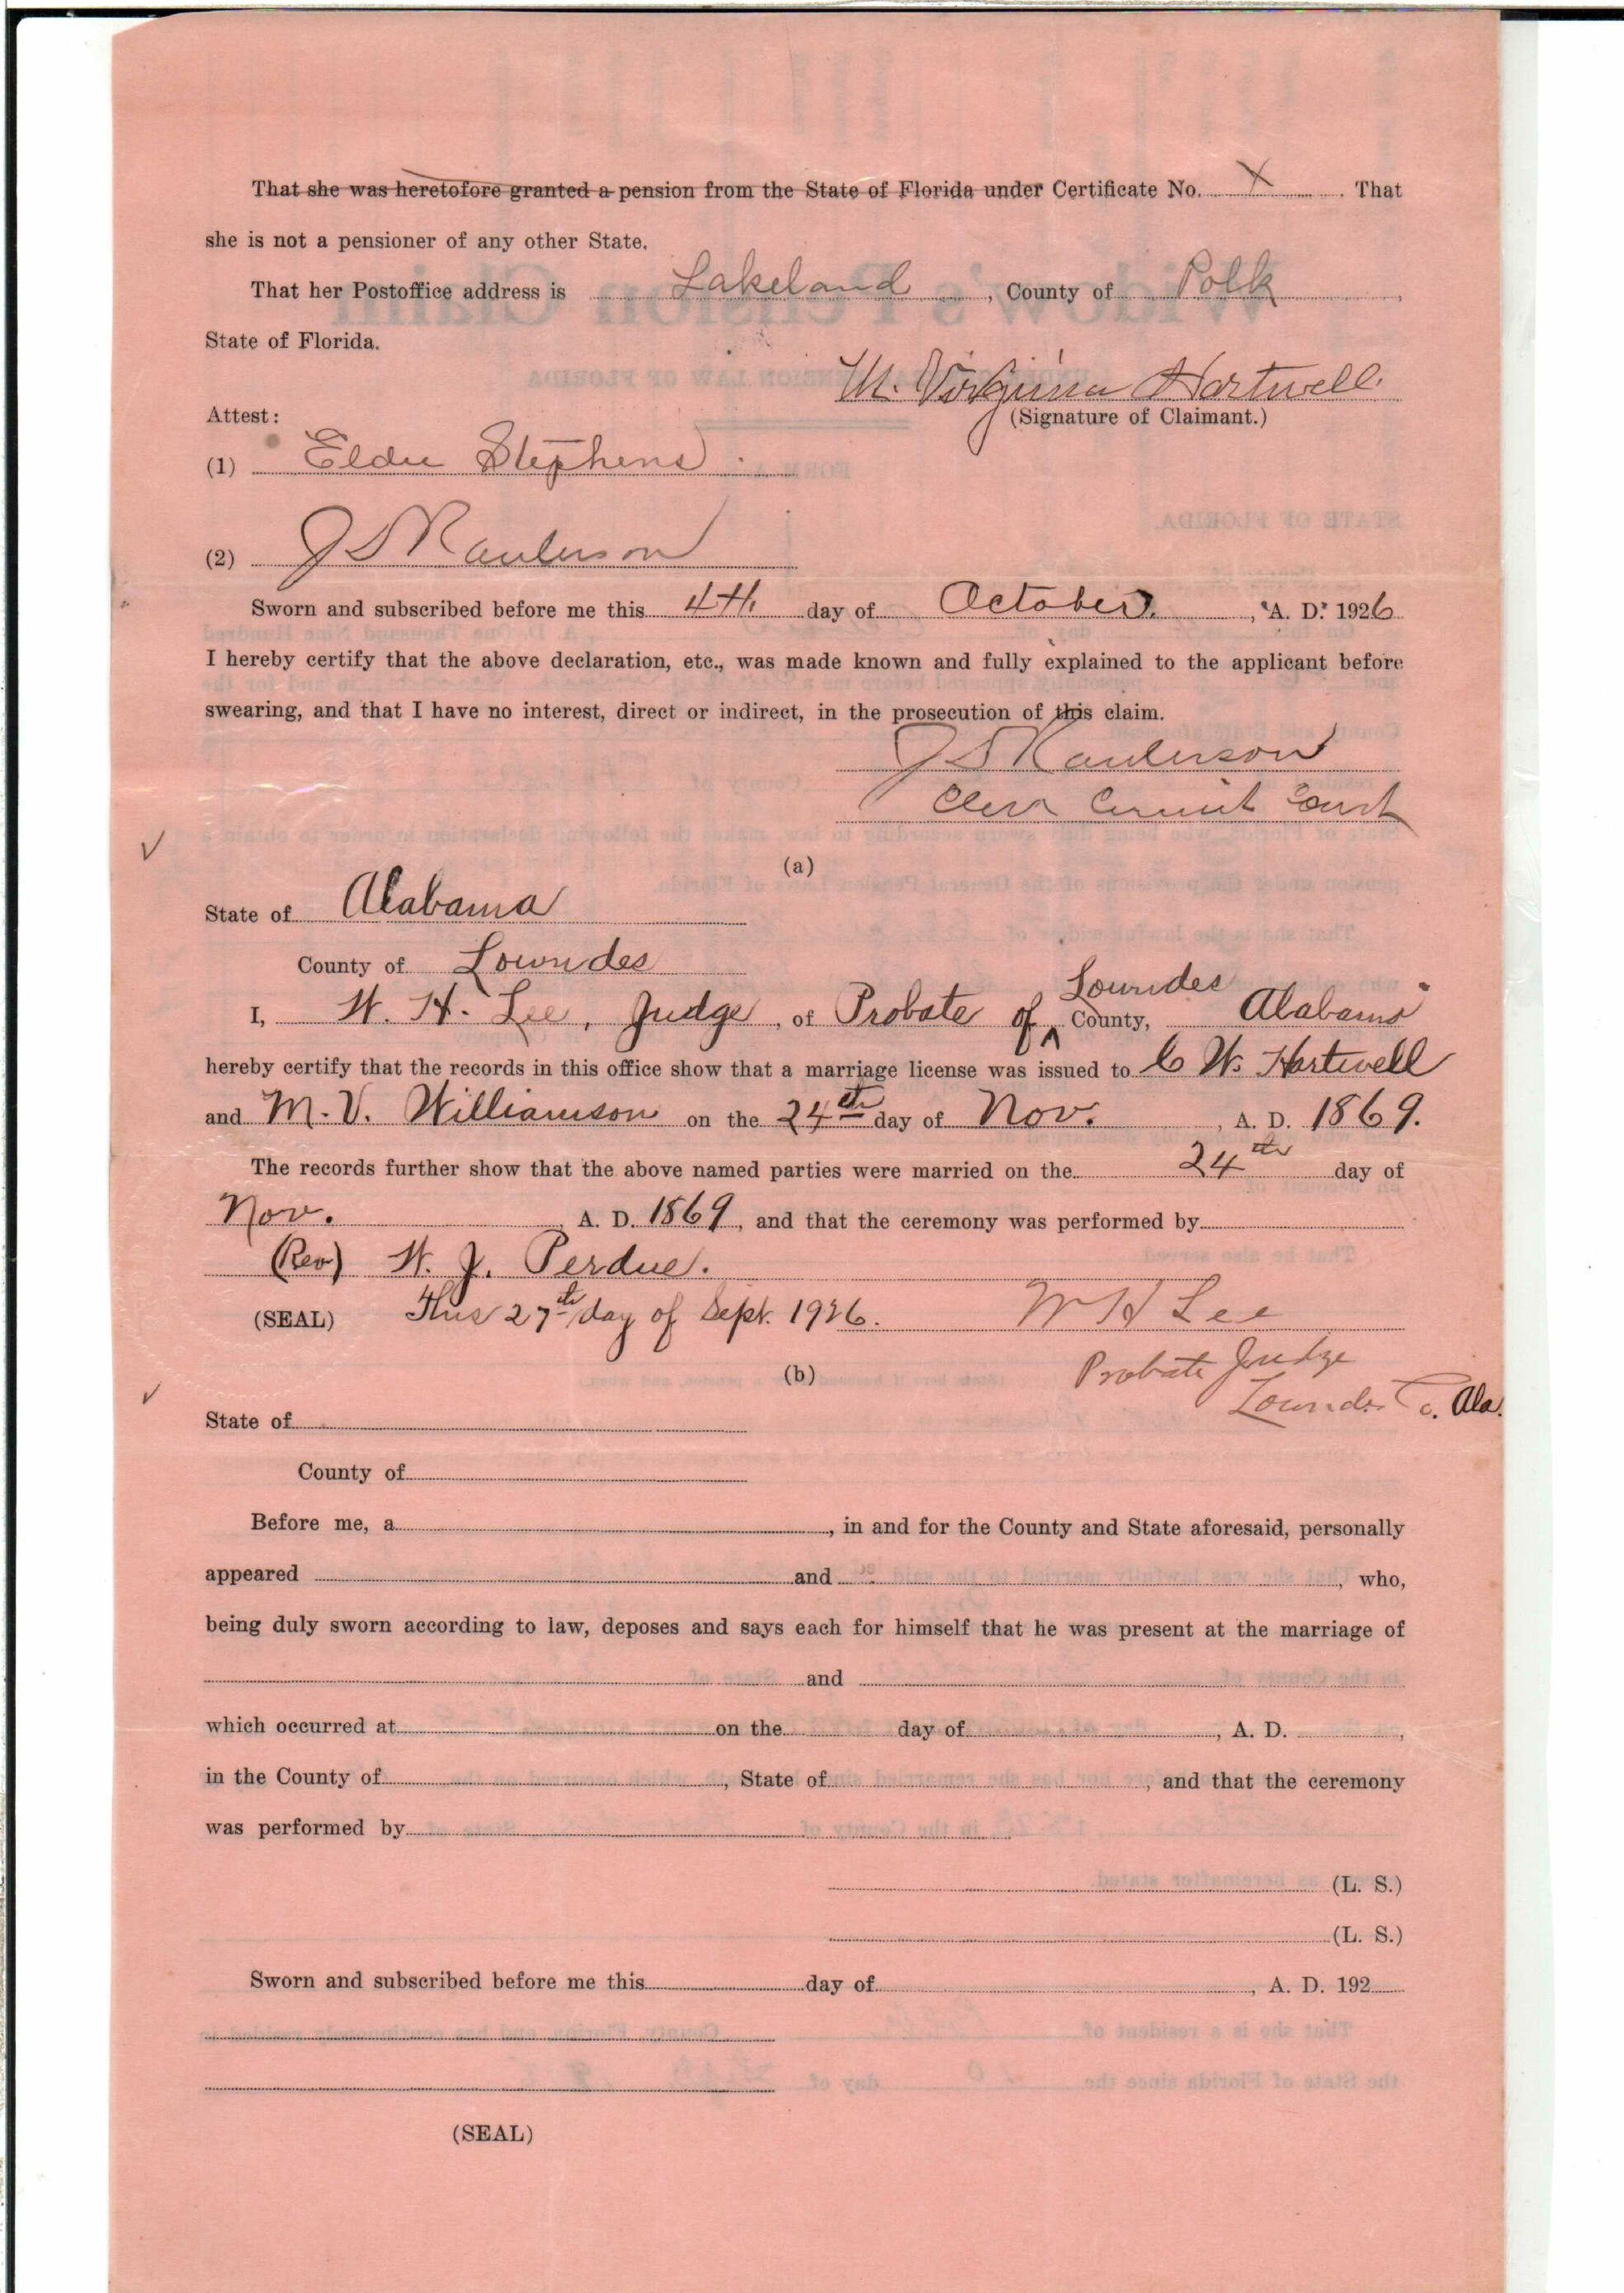 That she was heretofore granted a pension from the State of Florida under Certificate No. X . That
she is not a pensioner of any other State.
That her Postoffice address is Lakeland , County of Polk ,
State of Florida.
M. Virginia Hartwell
Attest: (Signature of Claimant.)
(1) Eldie Stephens
(2) J D Raulerson
Sworn and subscribed before me this 4th day of October , A. D. 1926
I hereby certify that the above declaration, etc., was made known and fully explained to the applicant before
swearing, and that I have no interest, direct or indirect, in the prosecution of this claim.
J D Raulerson
Clerk Circuit Court
(a)
State of Alabama
County of Lowndes
I, W. H. Lee, Judge , of Probate of Lowndes County, Alabama
hereby certify that the records in this office show that a marriage license was issued to C W. Hartwell
and M. V. Williamson on the 24th day of Nov. , A. D. 1869.
The records further show that the above named parties were married on the 24th day of
Nov. , A. D. 1869, and that the ceremony was performed by
(Rev) W. J. Perdue.
(SEAL) This 27th day of Sept. 1926. W H Lee
(b) Probate Judge
Lowndes Co. Ala.
State of
County of
Before me, a , in and for the County and State aforesaid, personally
appeared and , who,
being duly sworn according to law, deposes and says each for himself that he was present at the marriage of
and
which occurred at on the day of , A. D. ,
in the County of , State of , and that the ceremony
was performed by
(L. S.)
(L. S.)
Sworn and subscribed before me this day of , A. D. 192
(SEAL)